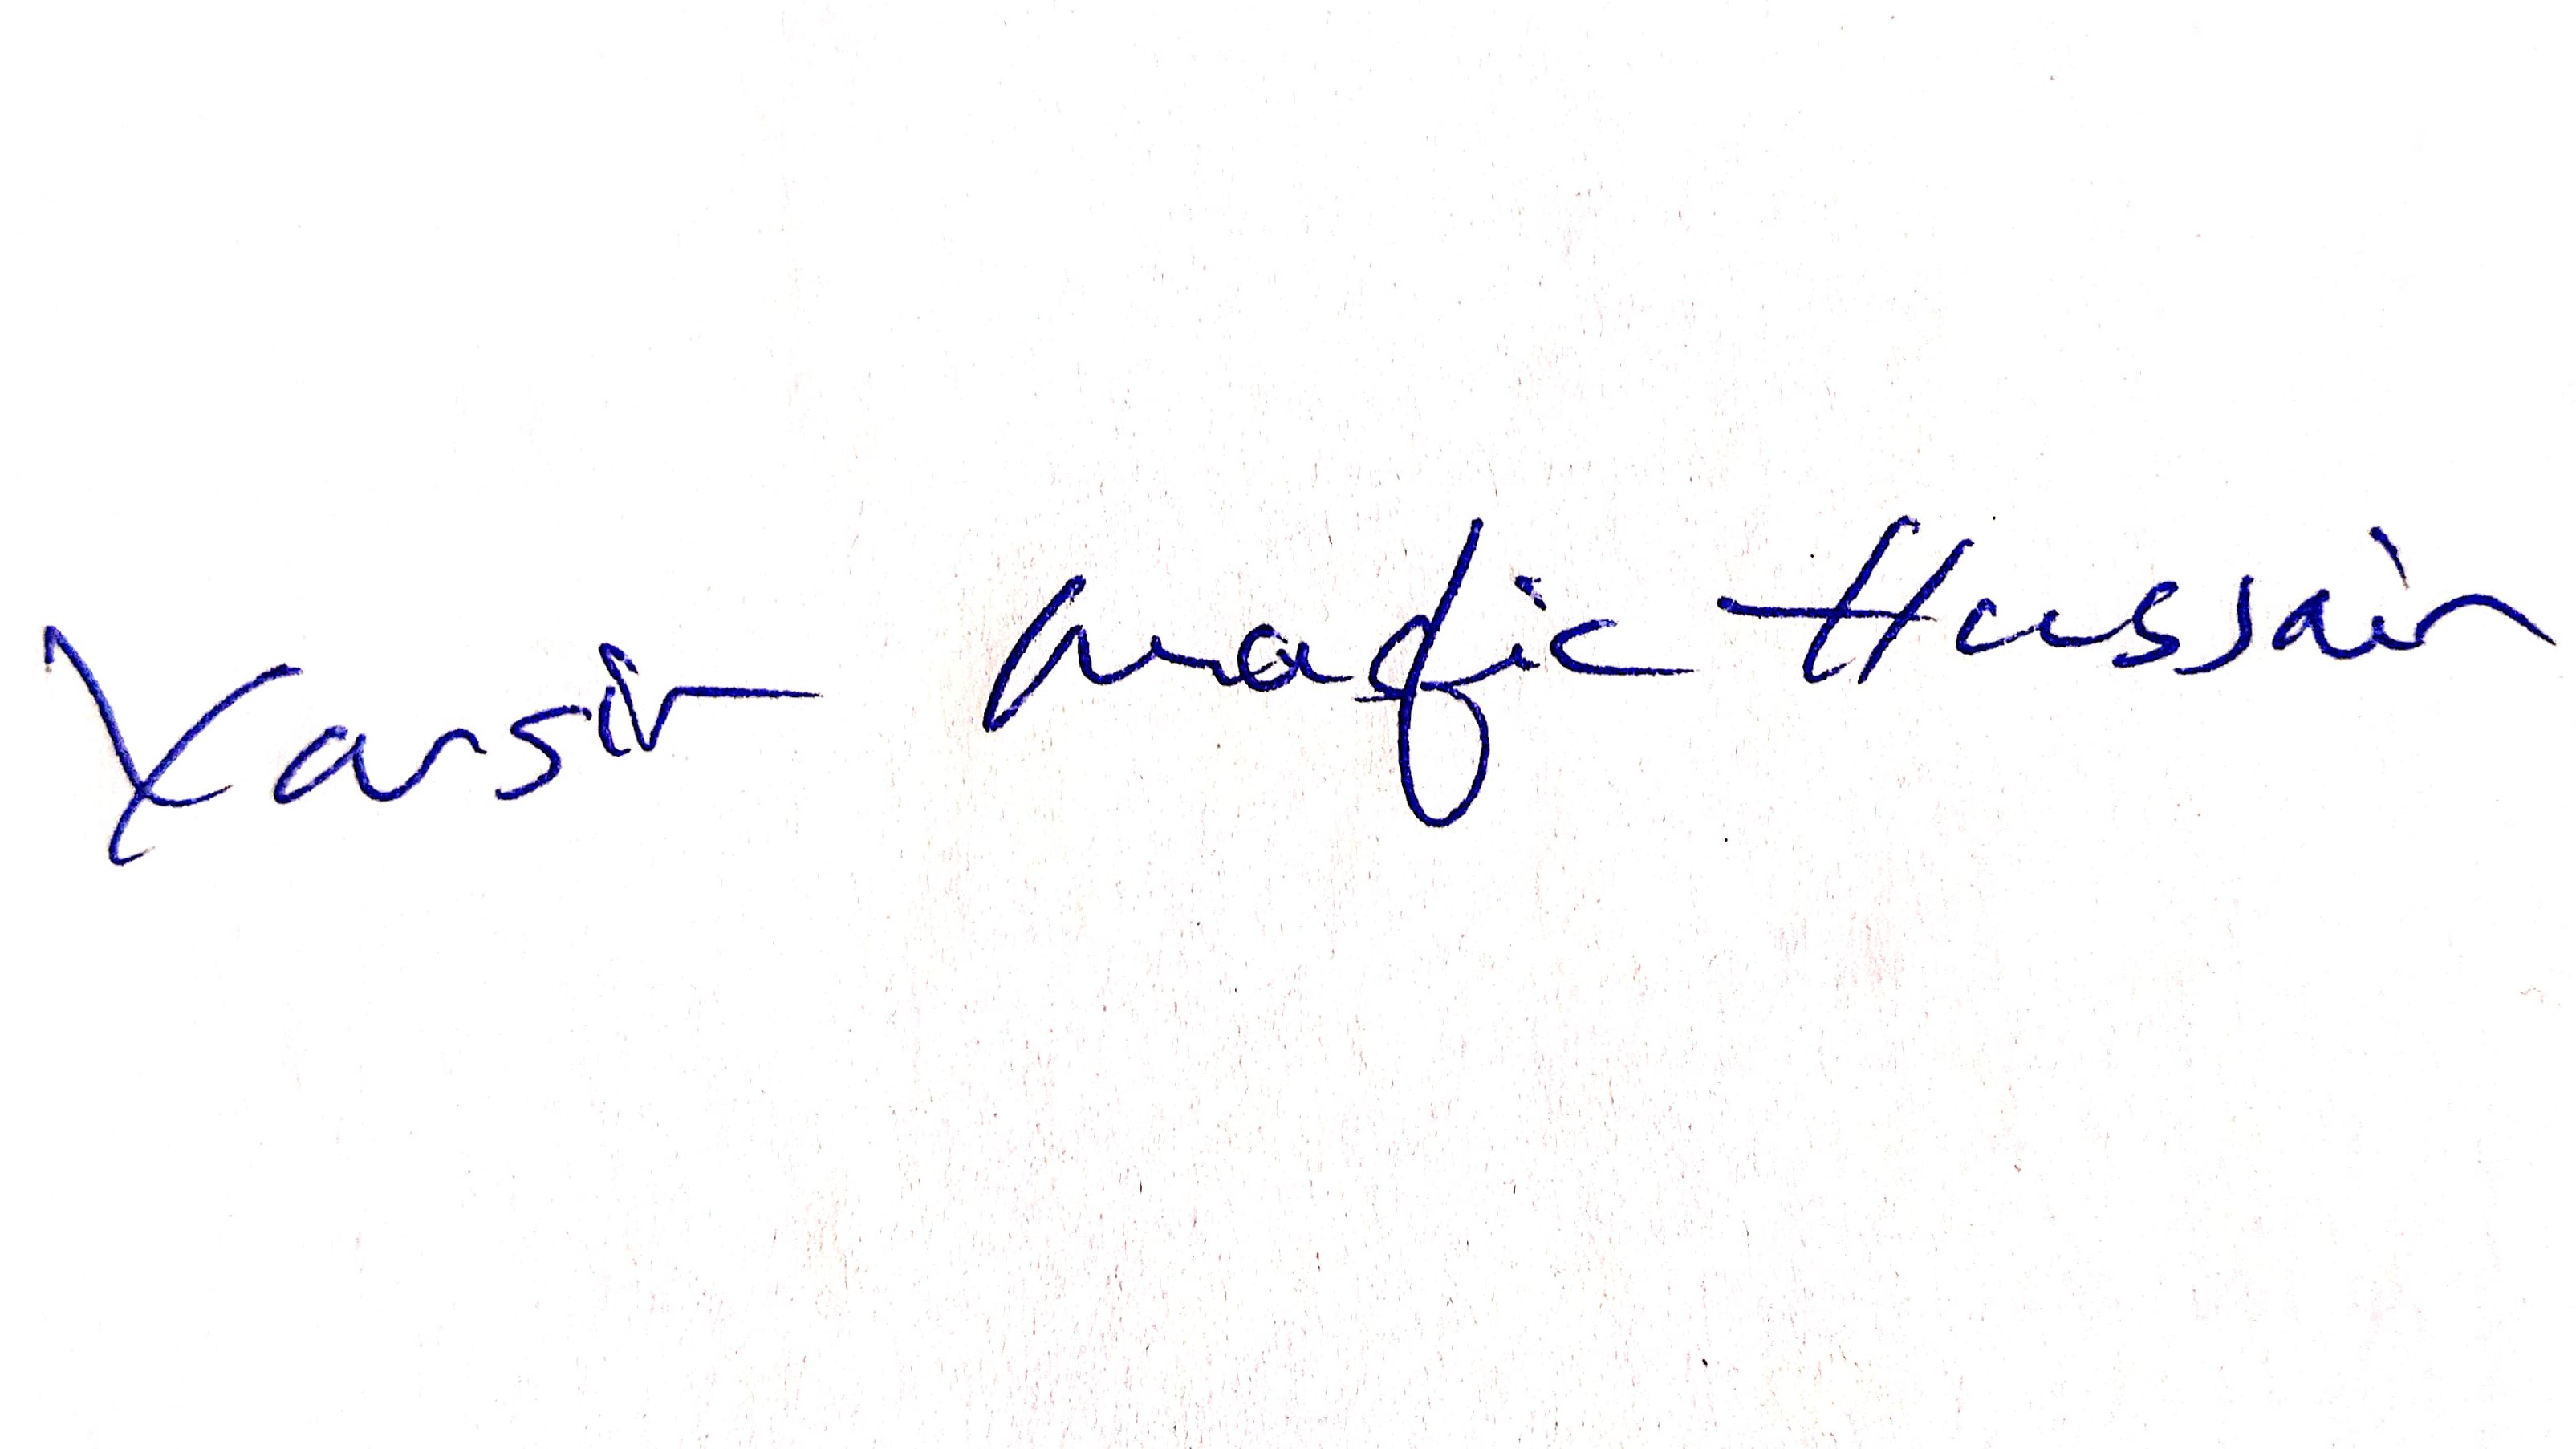 Yarsir Arafic Hussain